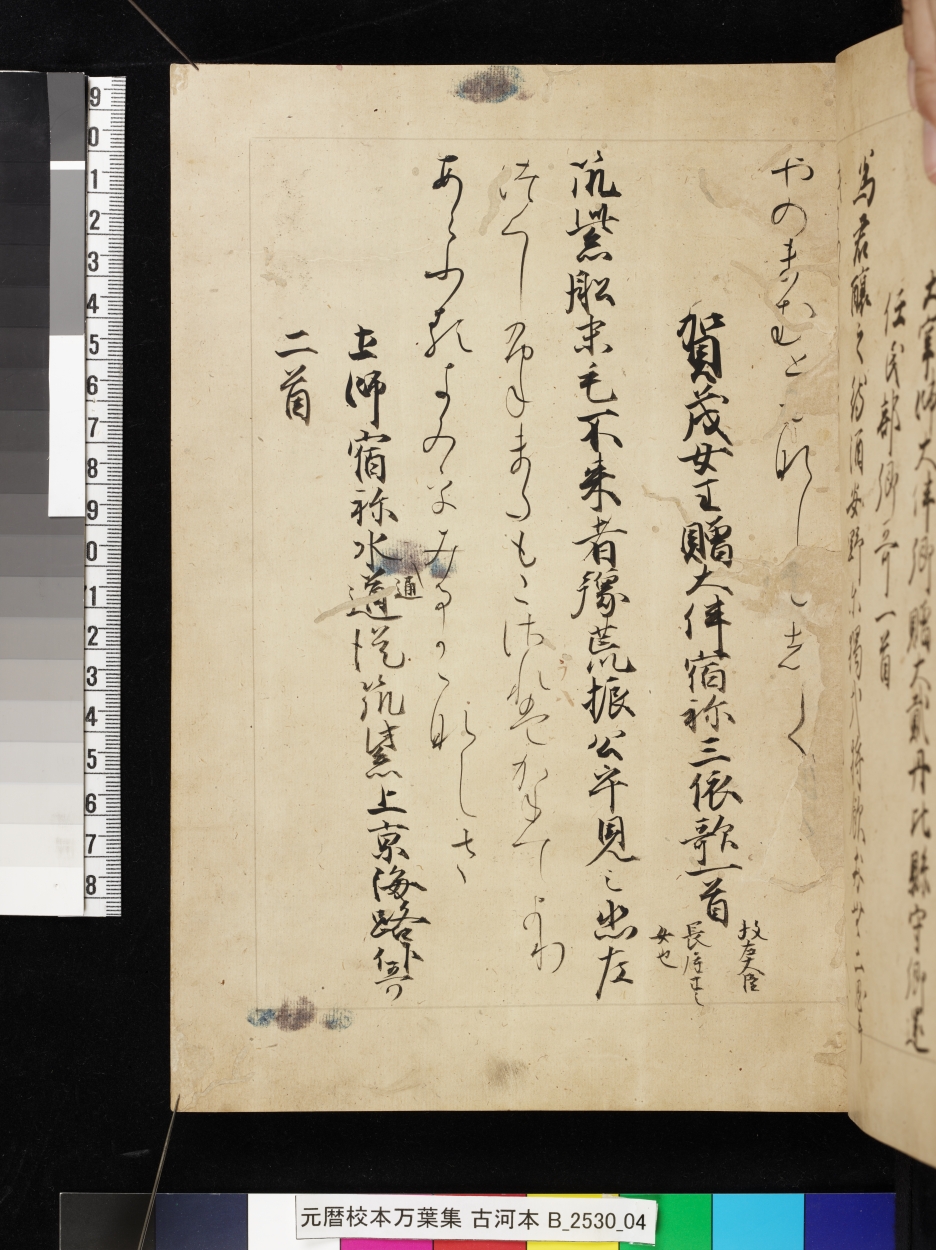 大宰帥大伴卿贈大貳丹比縣守卿遷
任民部卿哥一首
為君醸之待酒安野尓獨哉将飲友無二思手
やのまむともなしにして
賀茂女王贈大伴宿祢三依歌一首
故左大臣
長屋王之
女也
筑紫船未毛不来者豫荒振公乎見之悲左
つくしふねまたもこされはかねてより
あらふるきみをみるかかなしさ
土師宿祢水道従筑紫上京海路作哥
通
二首
元暦校本万葉集 古河本 B_2530_04